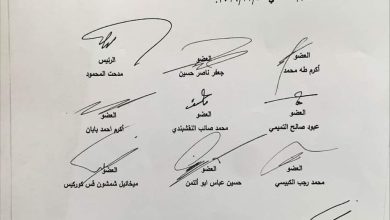 العضو العضو الرئيس
أكرم طه محمد جعفر ناصر حسين مدحت المحمود
العضو العضو العضو
عبود صالح التميمي محمد صائب النقشبندي أكرم احمد بابان
العضو العضو العضو
محمد رجب الكبيسي حسين عباس ابو التمن ميخائيل شمشون قس كوركيس